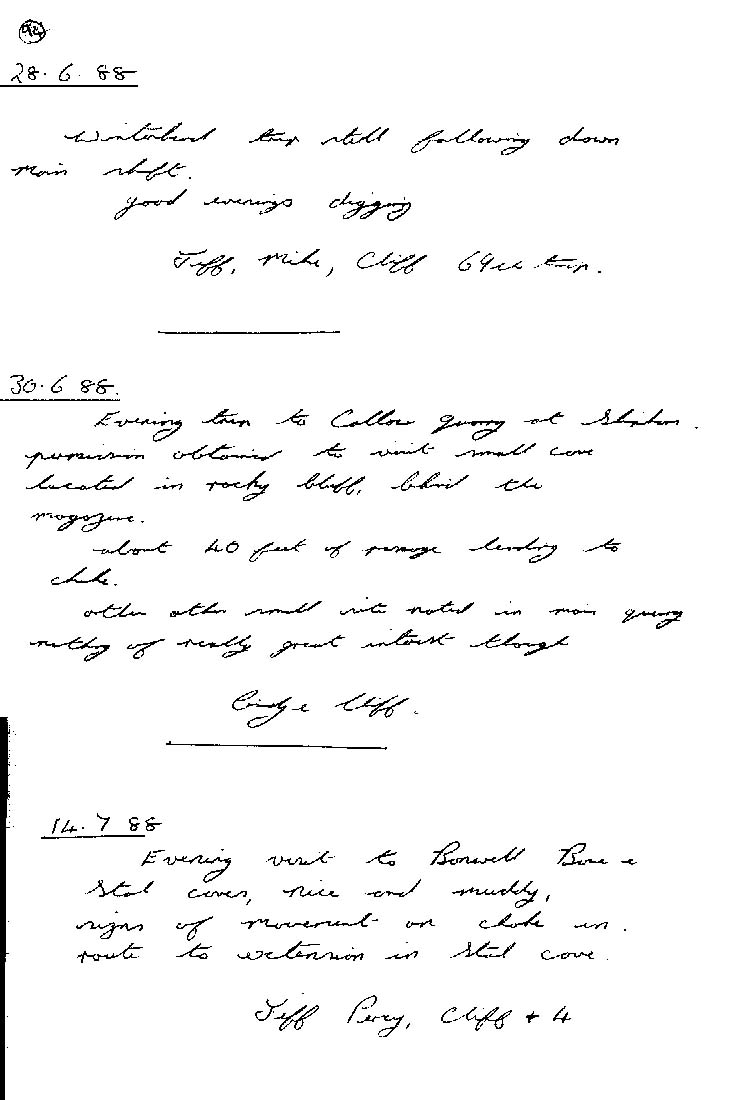 92
28.6.88
Winterhead trip still following down
main shaft.
good evenings digging
Jeff, Mike, Cliff trip.
30.6 88.
Evening trip to Callow quarry at Shipham.
permission obtained to visit small cave
located in rocky bluff, behind the
magazine.
about 40 feet of passage leading to
choke.
other other small noted in main quarry
nothing of really great interest though
Cliff.
14.7 88
Evening visit to Banwell Bone &
Stal caves, nice and muddy,
signs of movement on choke in.
route to extension in Stal cave.
Jeff Percy, Cliff + 4